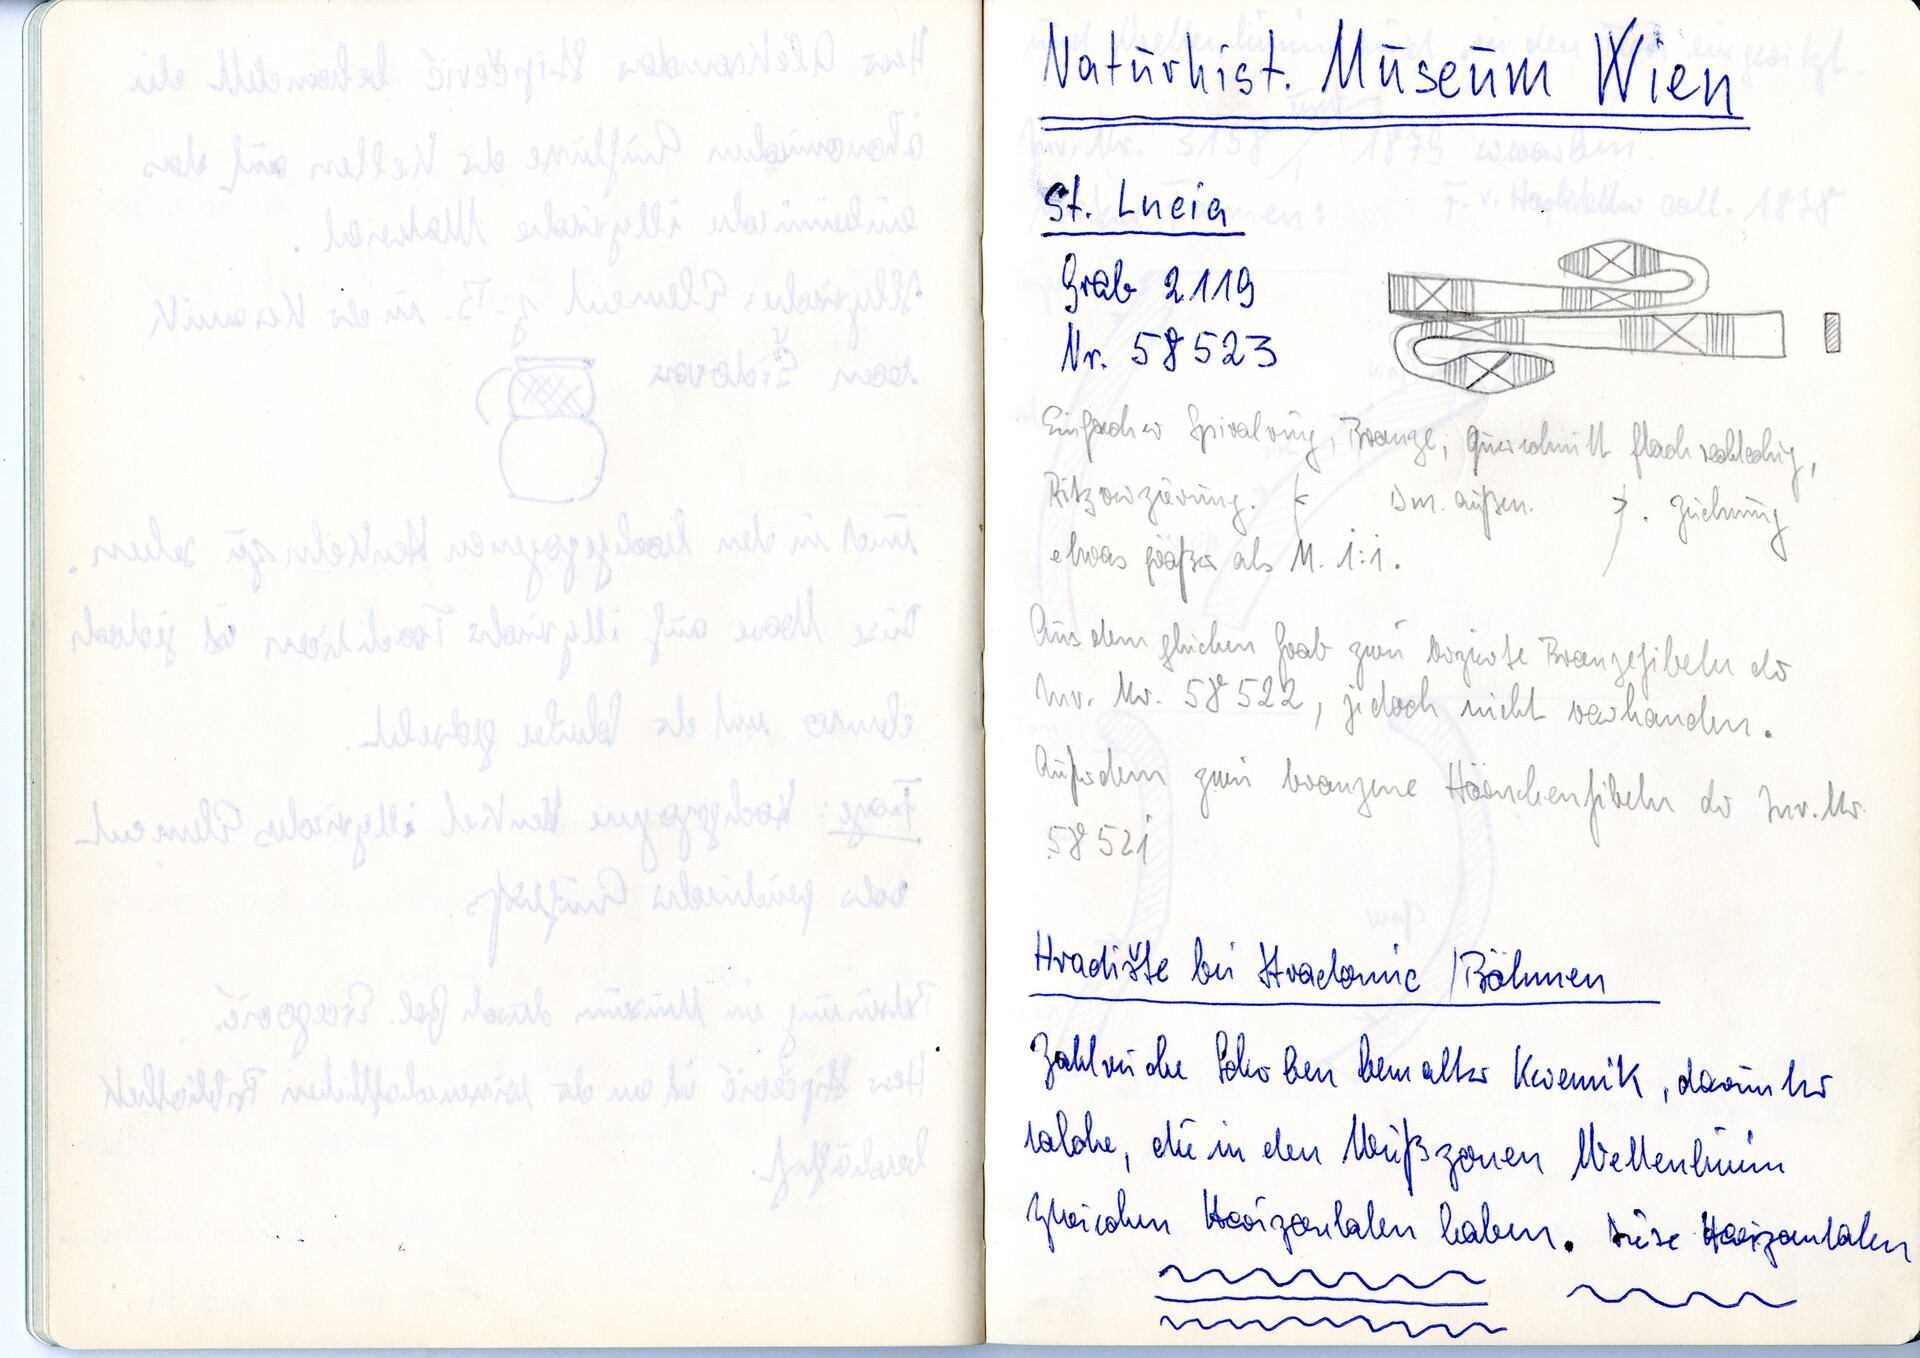 Naturhist. Museum Wien
St. Lucia
Grab 2119
Nr. 58523
Einfacher Spiralring, Bronze, Querschnitt flach rechteckig,
Ritzverzierung. ( Dm. außen. ). Zeichnung
etwas größer als M. 1:1.
Aus dem gleichen Grab zwei verzierte Bronzefibeln der
Inv. Nr. 58522, jedoch nicht vorhanden.
Außerdem zwei bronzene Hörnchenfibeln der Inv. Nr.
58521
Hradište bei Stradonic / Böhmen
Zahlreiche Scherben bemalter Keramik, darunter
solche, die in den Weißzonen Wellenlinien
zwischen Horizontalen haben. Diese Horizontalen